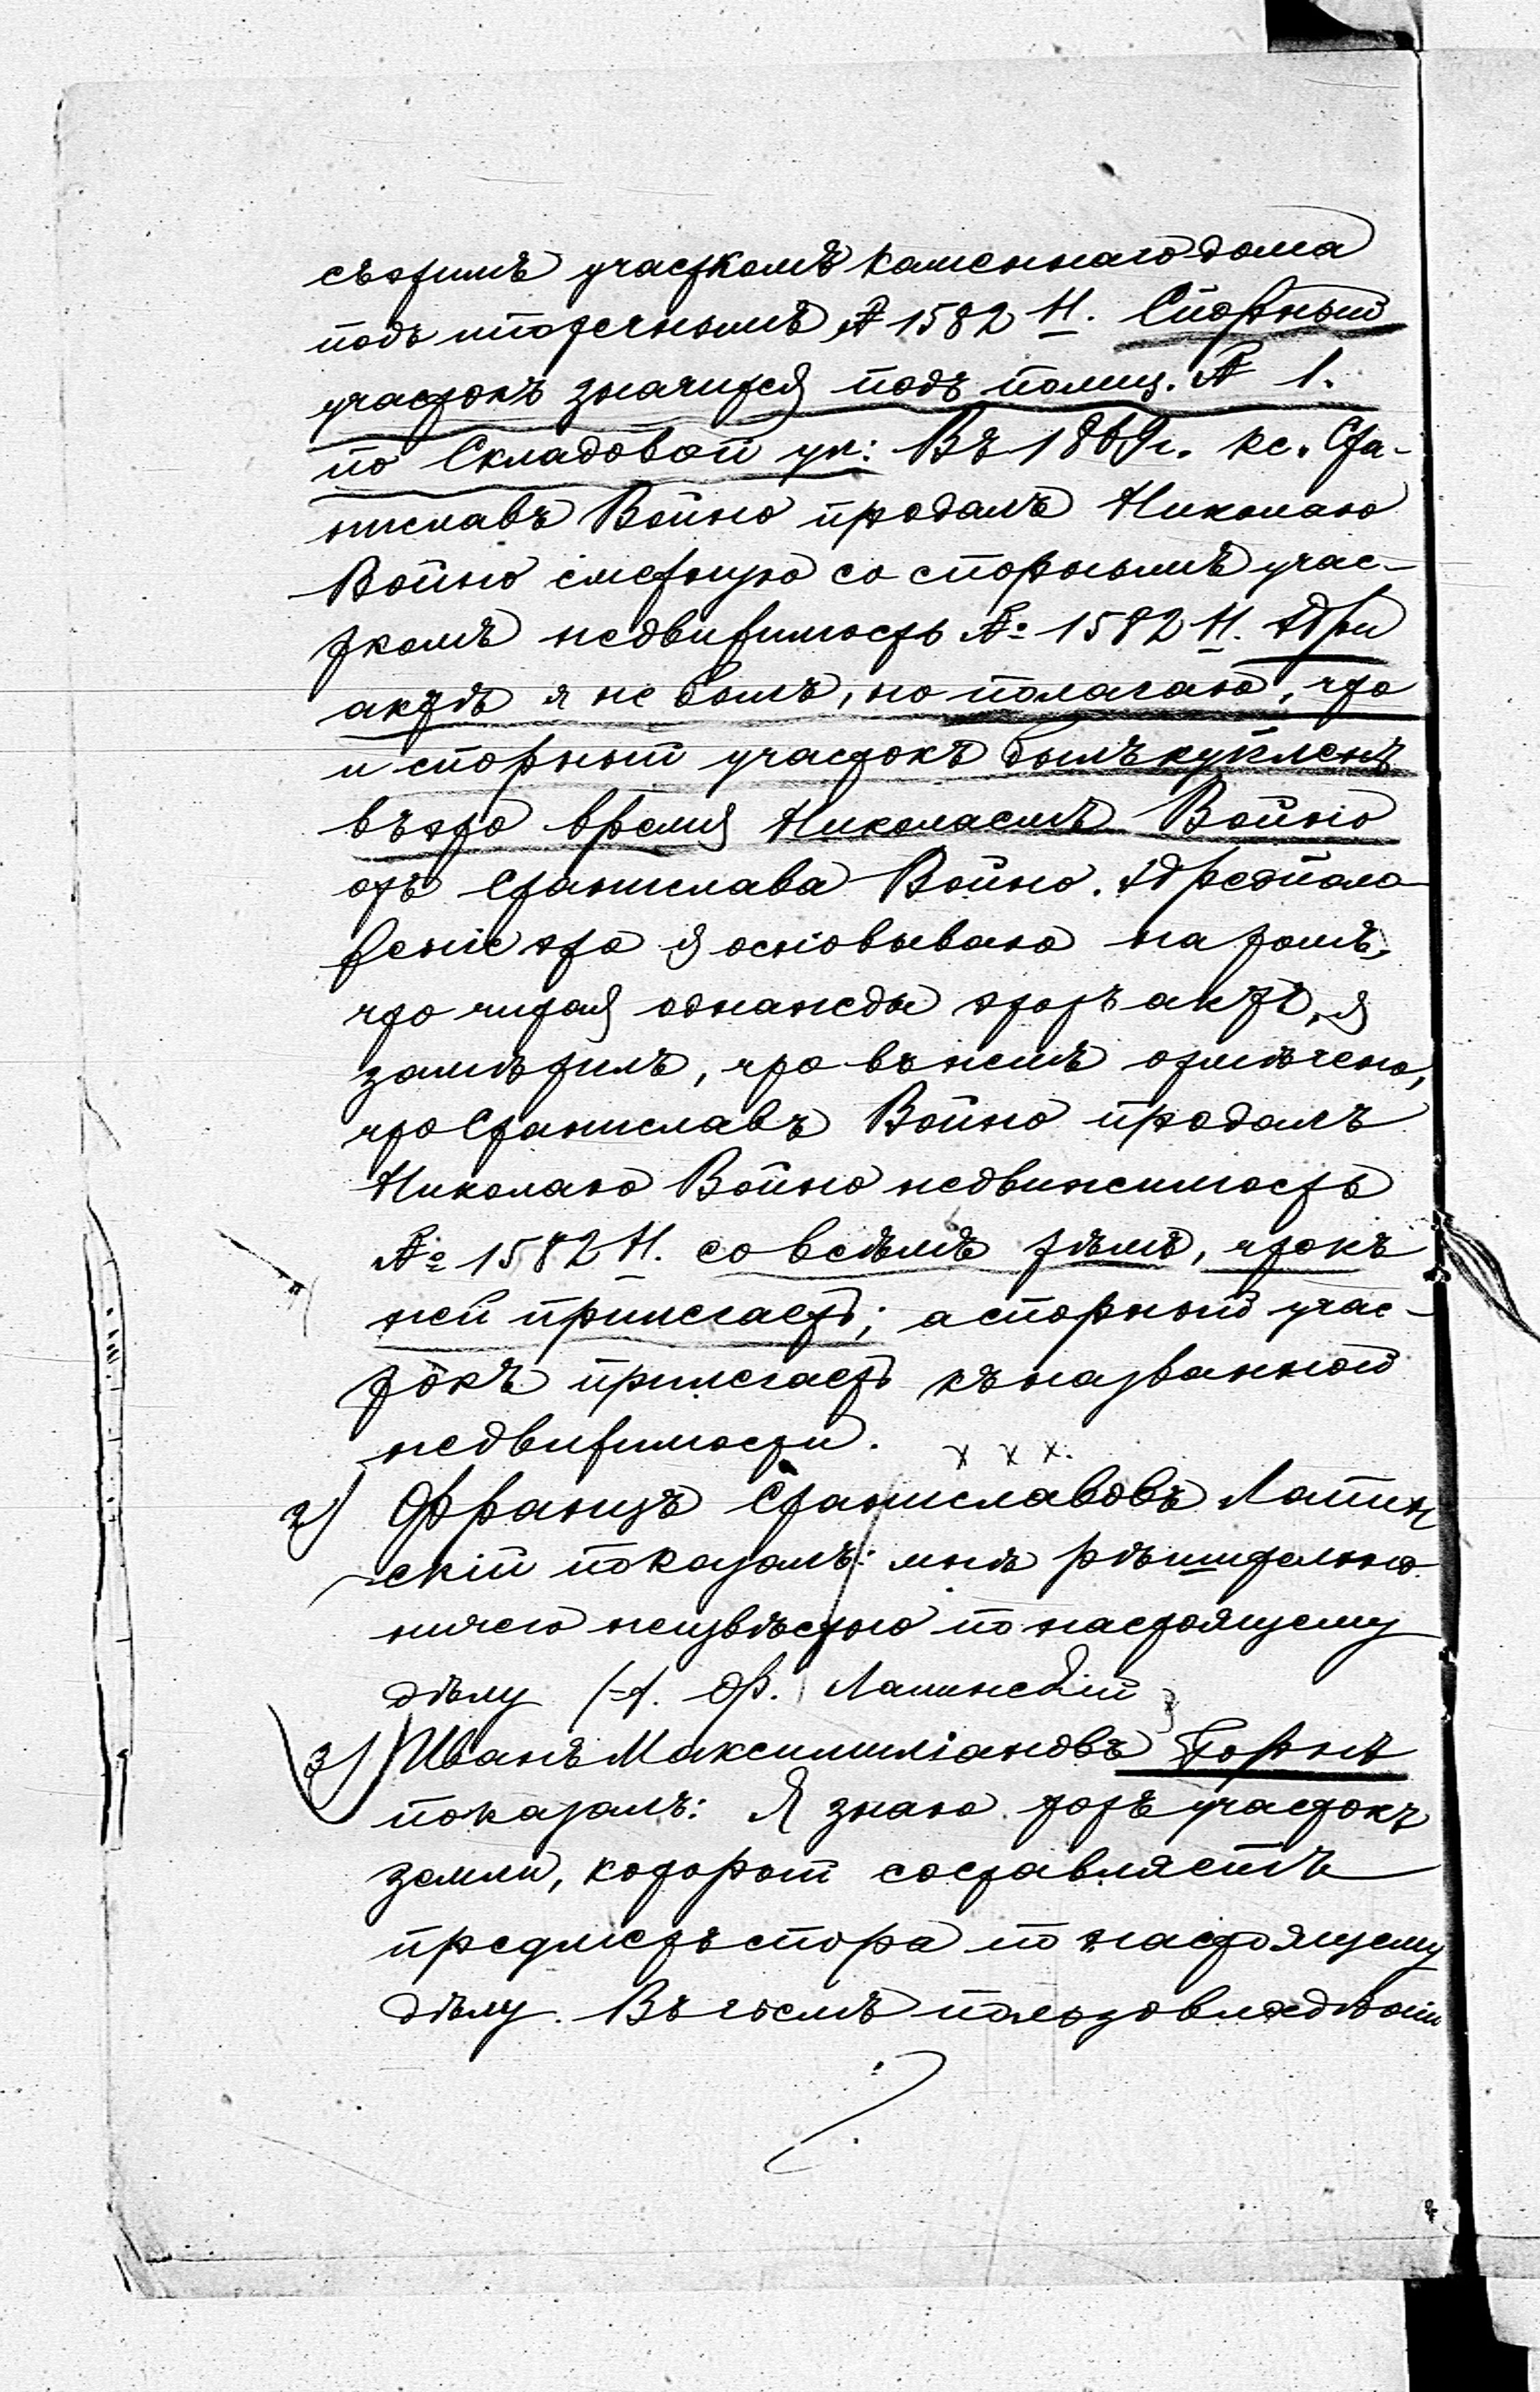 съэтимъ участкомъ каменнаго дома
подъ ипотечнымъ № 1582 Н. Спорный
участокъ значится подъ полиц. № 1.
по Складовой ул: Въ 1869 г. кс. Ста-
ниславъ Войно продалъ Николаю
Войно смежную со спорнымъ учас-
ткомъ недвижимость № 1582 Н. При
актѣ я не былъ, но полагаю, что
и спорный участокъ былъ купленъ
въ это время Николаемъ Войно
отъ Станислава Войно. Предполо-
женіе это я основываю на томъ,
что читая однажды этотъ актъ, я
замѣтилъ, что въ немъ отмѣчено,
что Станиславъ Войно продалъ
Николаю Войно недвижимость
№ 1582 Н. со всѣмъ тѣмъ, что къ
ней прилегаетъ; а спорный учас-
токъ прилегаетъ къ названной
недвижимости. х х х.
2) Францъ Станиславовъ Лапин
скій показалъ: мнѣ рѣшительно
ничего неизвѣстно по настоящему
дѣлу (-). Фр. Лапинскій
3) Иванъ Максимиліановъ Горнъ
показалъ: Я знаю тотъ участокъ
земли, который составляетъ
предметъ спора по настоящему
дѣлу. Въ чьемъ пользовладѣніи